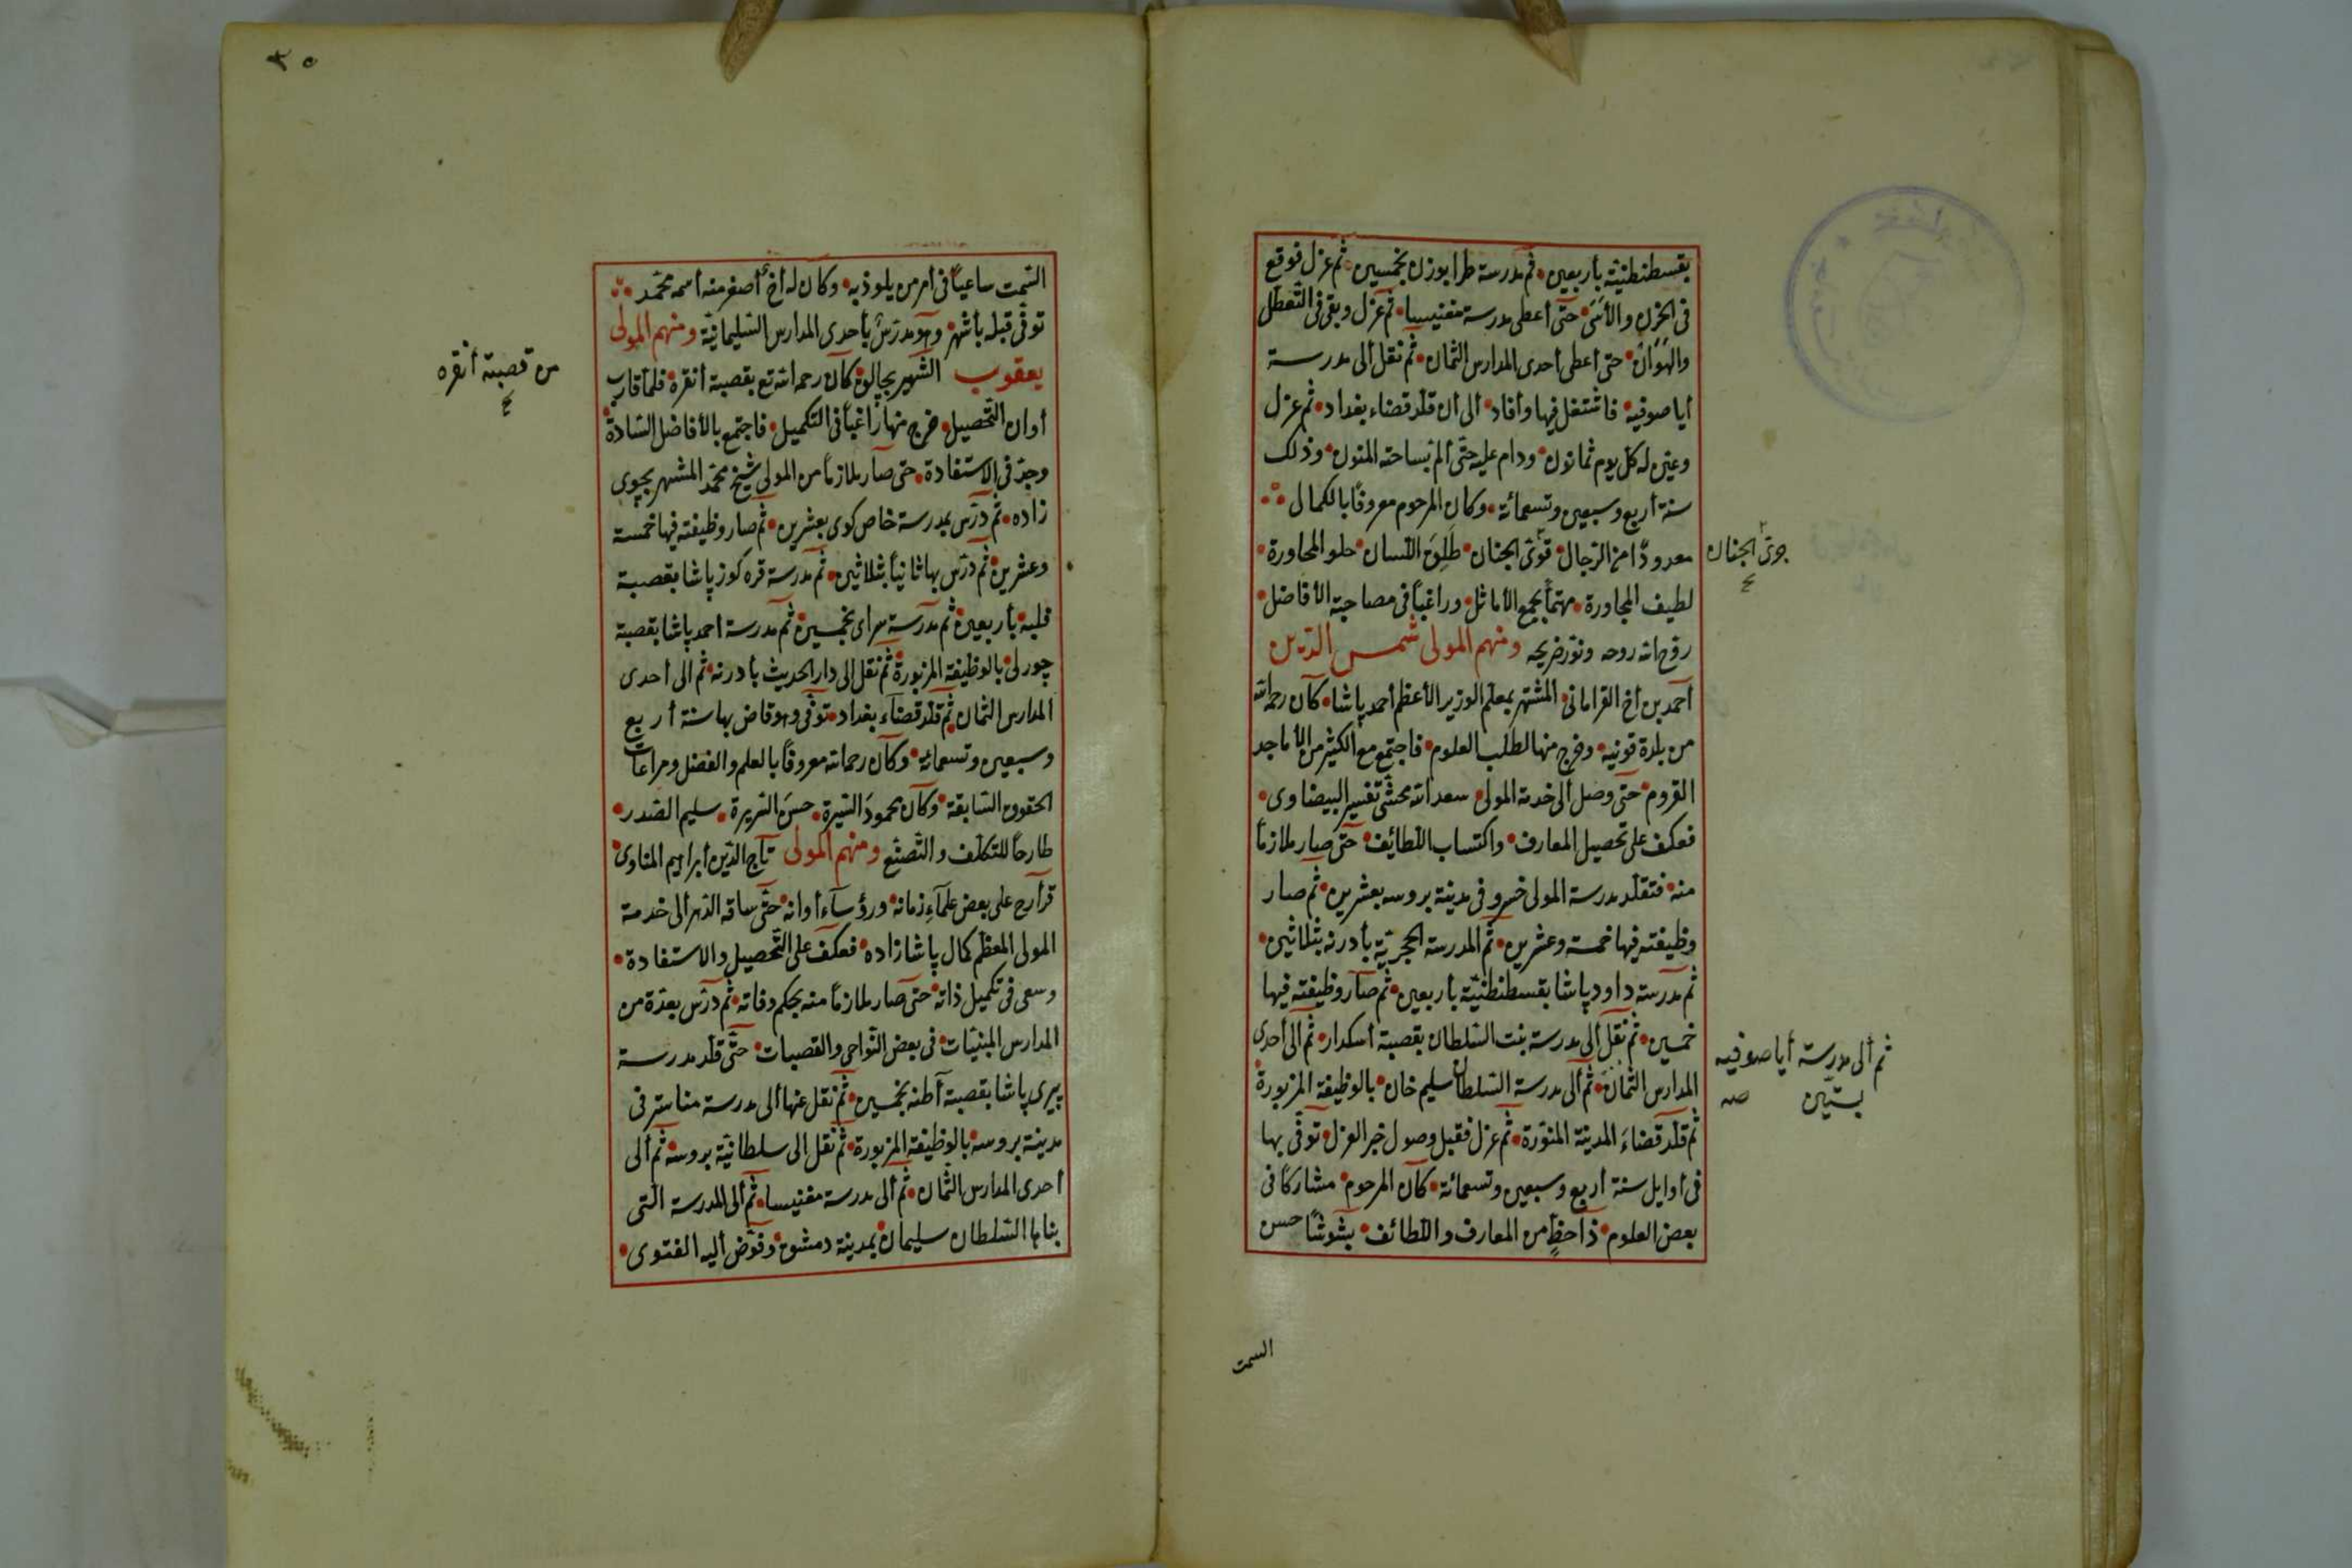 بقسطنطنيّة بأربعين • ثم مدرسة طرابوزن بخمسين • ثم عزل فوقع
فى الحزن والأسَى • حتّى أعطى مدرسة مغنيسا • ثم عزل وبقى فى التّعطّل
والهَوَان • حتى أعطى أحدى المدارس الثمان • ثم نقل ألى مدرسة
أيا صوفيه • فاشتغل فيها وأفاد • ألى أن قلّد قضاء بغداد • ثم عزل
وعيّن له كلّ يوم ثمانون • ودام عليه حتّى ألم بساحته المنون • وذلك
سنة أربع وسبعين وتسعمائة • وكان المرحوم معروفًا بالكمال
معدودًا من الرّجال • قوىّ الجنان • طَلِقَ اللّسان • حلو المحاورة •
جرىّ الجنان
لطيف المجاورة • مهتمًّا بجمع الأماثل • وراغبًا فى مصاحبة الأفاضل •
روّح الله روحه ونوّر ضريحه ومنهم المولى شمس الدّين
أحمد بن أخ القرامانى • المشتهر بمعلّم الوزير الأعظم أحمد پاشا • كان رحمه الله
من بلدة قونيه • وخرج منها لطلب العلوم • فاجتمع مع الكثير من الأماجد
القروم • حتّى وصل ألى خدمة المولى سعد الله محشّى تفسير البيضاوى •
فعكف على تحصيل المعارف • واكتساب اللّطائف • حتّى صار ملازمًا
منه • فتقلّد مدرسة المولى خسرو فى مدينة بروسه بعشرين • ثم صار
وظيفته فيها خمسة وعشرين • ثم المدرسة الحجريّة بأدرنه بثلاثين •
ثم مدرسة داود پاشا بقسطنطنيّة بأربعين • ثم صار وظيفته فيها
خمسين • ثم نقل ألى مدرسة بنت السّلطان بقصبة أسكدار • ثم ألى أحدى
المدارس الثمان • ثم ألى مدرسة السّلطان سليم خان • بالوظيفة المزبورة
ثم ألى مدرسة أيا صوفيه
بستّين صه
ثم قلّد قضاءَ المدينة المنوّرة • ثم عزل فقبل وصول خبر العزل • توفّى بها
فى أوايل سنة أربع وسبعين وتسعمائة • كان المرحوم مشاركًا فى
بعض العلوم • ذا حظٍّ من المعارف واللّطائف • بشوشًا حسن
السمت
٣٥
السّمت ساعيًا فى أمر من يلوذ به • وكان له أخ أصغر منه أسمه محمّد
توفّى قبله بأشهر • وهو مدرّسٌ بأحدى المدارس السّليمانيّة ومنهم المولى
يعقوب الشّهير بجالق • كان رحمه الله تع بقصبة أنقره • فلمّا قارب
من قصبة أنقره
أوان التّحصيل • خرج منها راغبًا فى التكميل • فاجتمع بالأفاضل السّادة
وجدّ فى الاستفادة • حتى صار ملازمًا من المولى شيخ محمّد المشتهر بچوى
زاده • ثم درّس بمدرسة خاص كوى بعشرين • ثم صار وظيفته فيها خمسة
وعشرين • ثم درّس بها ثانيًا بثلاثين • ثم مدرسة قره كوز پاشا بقصبة
فلبه بأربعين • ثم مدرسة سراى بخمسين • ثم مدرسة احمد پاشا بقصبة
چورلى • بالوظيفة المزبورة • ثم نقل الى دار الحديث بأدرنه • ثم الى أحدى
المدارس الثمان • ثم قلّد قضاء بغداد • توفّى وهو قاض بها سنة أربع
وسبعين وتسعمائة • وكان رحمه الله معروفًا بالعلم والفضل ومراعات
الحقوق السّابقة • وكان محمودَ السّيرة • حسن السّريرة • سليم الصّدر •
طارحًا للتكلّف والتّصنّع ومنهم المولى تاج الدّين أبراهيم المناوى •
قرأ رح على بعض علماءِ زمانه • ورؤساء أوانه • حتّى ساقه الدّهر ألى خدمة
المولى المعظّم كمال پاشا زاده • فعكف على التّحصيل والاستفادة •
وسعى فى تكميل ذاته • حتى صار ملازمًا منه بحكم وفاته • ثم درّس بعدّة من
المدارس المبنيّات • فى بعض النّواحى والقصبات • حتّى قلّد مدرسة
پيرى پاشا بقصبة أطنه بخمسين • ثم نقل عنها ألى مدرسة مناستر فى
مدينة بروسه • بالوظيفة المزبورة • ثم نقل الى سلطانيّة بروسه • ثم ألى
أحدى المدارس الثّمان • ثم ألى مدرسة مغنيسا • ثم ألى المدرسة الّتى
بناها السّلطان سليمان بمدينة دمشق • وفوّض أليه الفتوى •